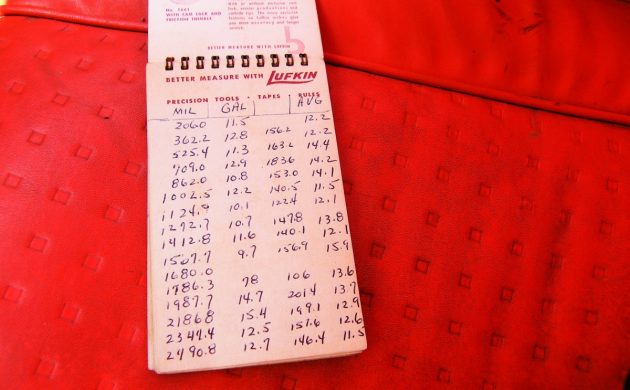 WITH CAM LOCK AND
FRICTION THIMBLE
features on Lufkin mikes give
you more accuracy and longer
service.
BETTER MEASURE WITH LUFKIN
BETTER MEASURE WITH LUFKIN
PRECISION TOOLS • TAPES • RULES
MIL GAL AVG
2060 11.5 12.2
362.2 12.8 156.2 12.2
525.4 11.3 163.2 14.4
709.0 12.9 183.6 14.2
862.0 10.8 153.0 14.1
1002.5 12.2 140.5 11.5
1124.9 10.1 122.4 12.1
1272.7 10.7 147.8 13.8
1412.8 11.6 140.1 12.1
9.7 156.9 15.9
1680.0
1786.3 78 106 13.6
1987.7 14.7 201.4 13.7
2186.8 15.4 199.1 12.9
2344.4 12.5 157.6 12.6
2490.8 12.7 146.4 11.5